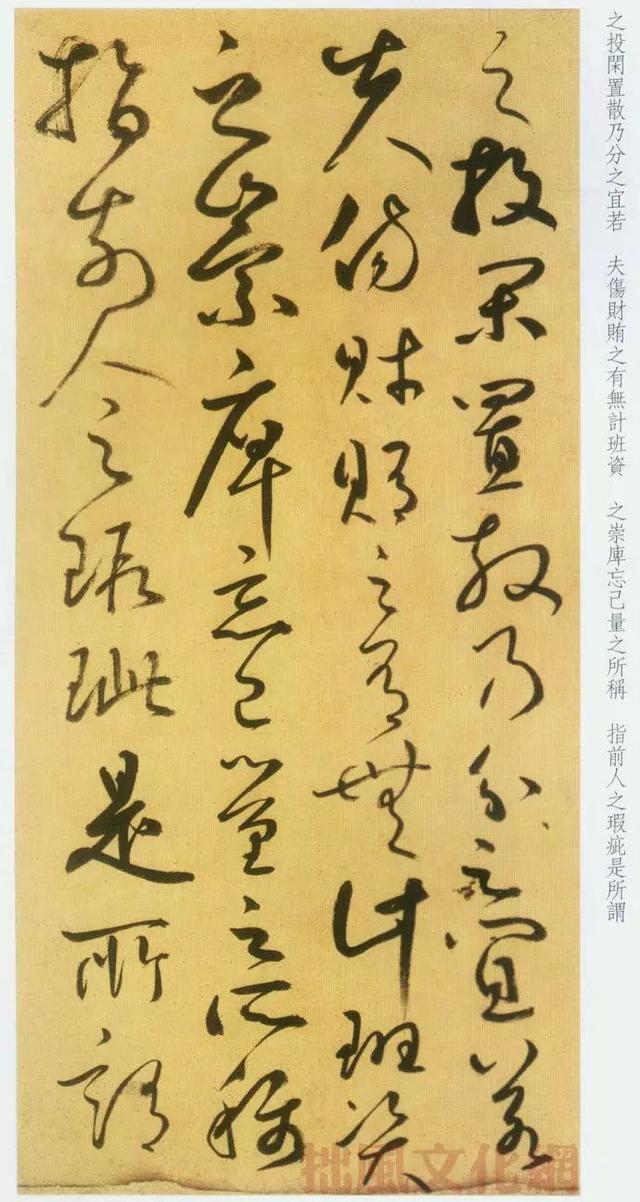 之投閑置散乃分之宜若　夫傷財賄之有無計班資　之崇庳忘己量之所稱　指前人之瑕疵是所謂
之投閑置散乃分之宜若
夫傷財賄之有無計班資
之崇庳忘己量之所稱
指前人之瑕玼是所謂
拙風文化網